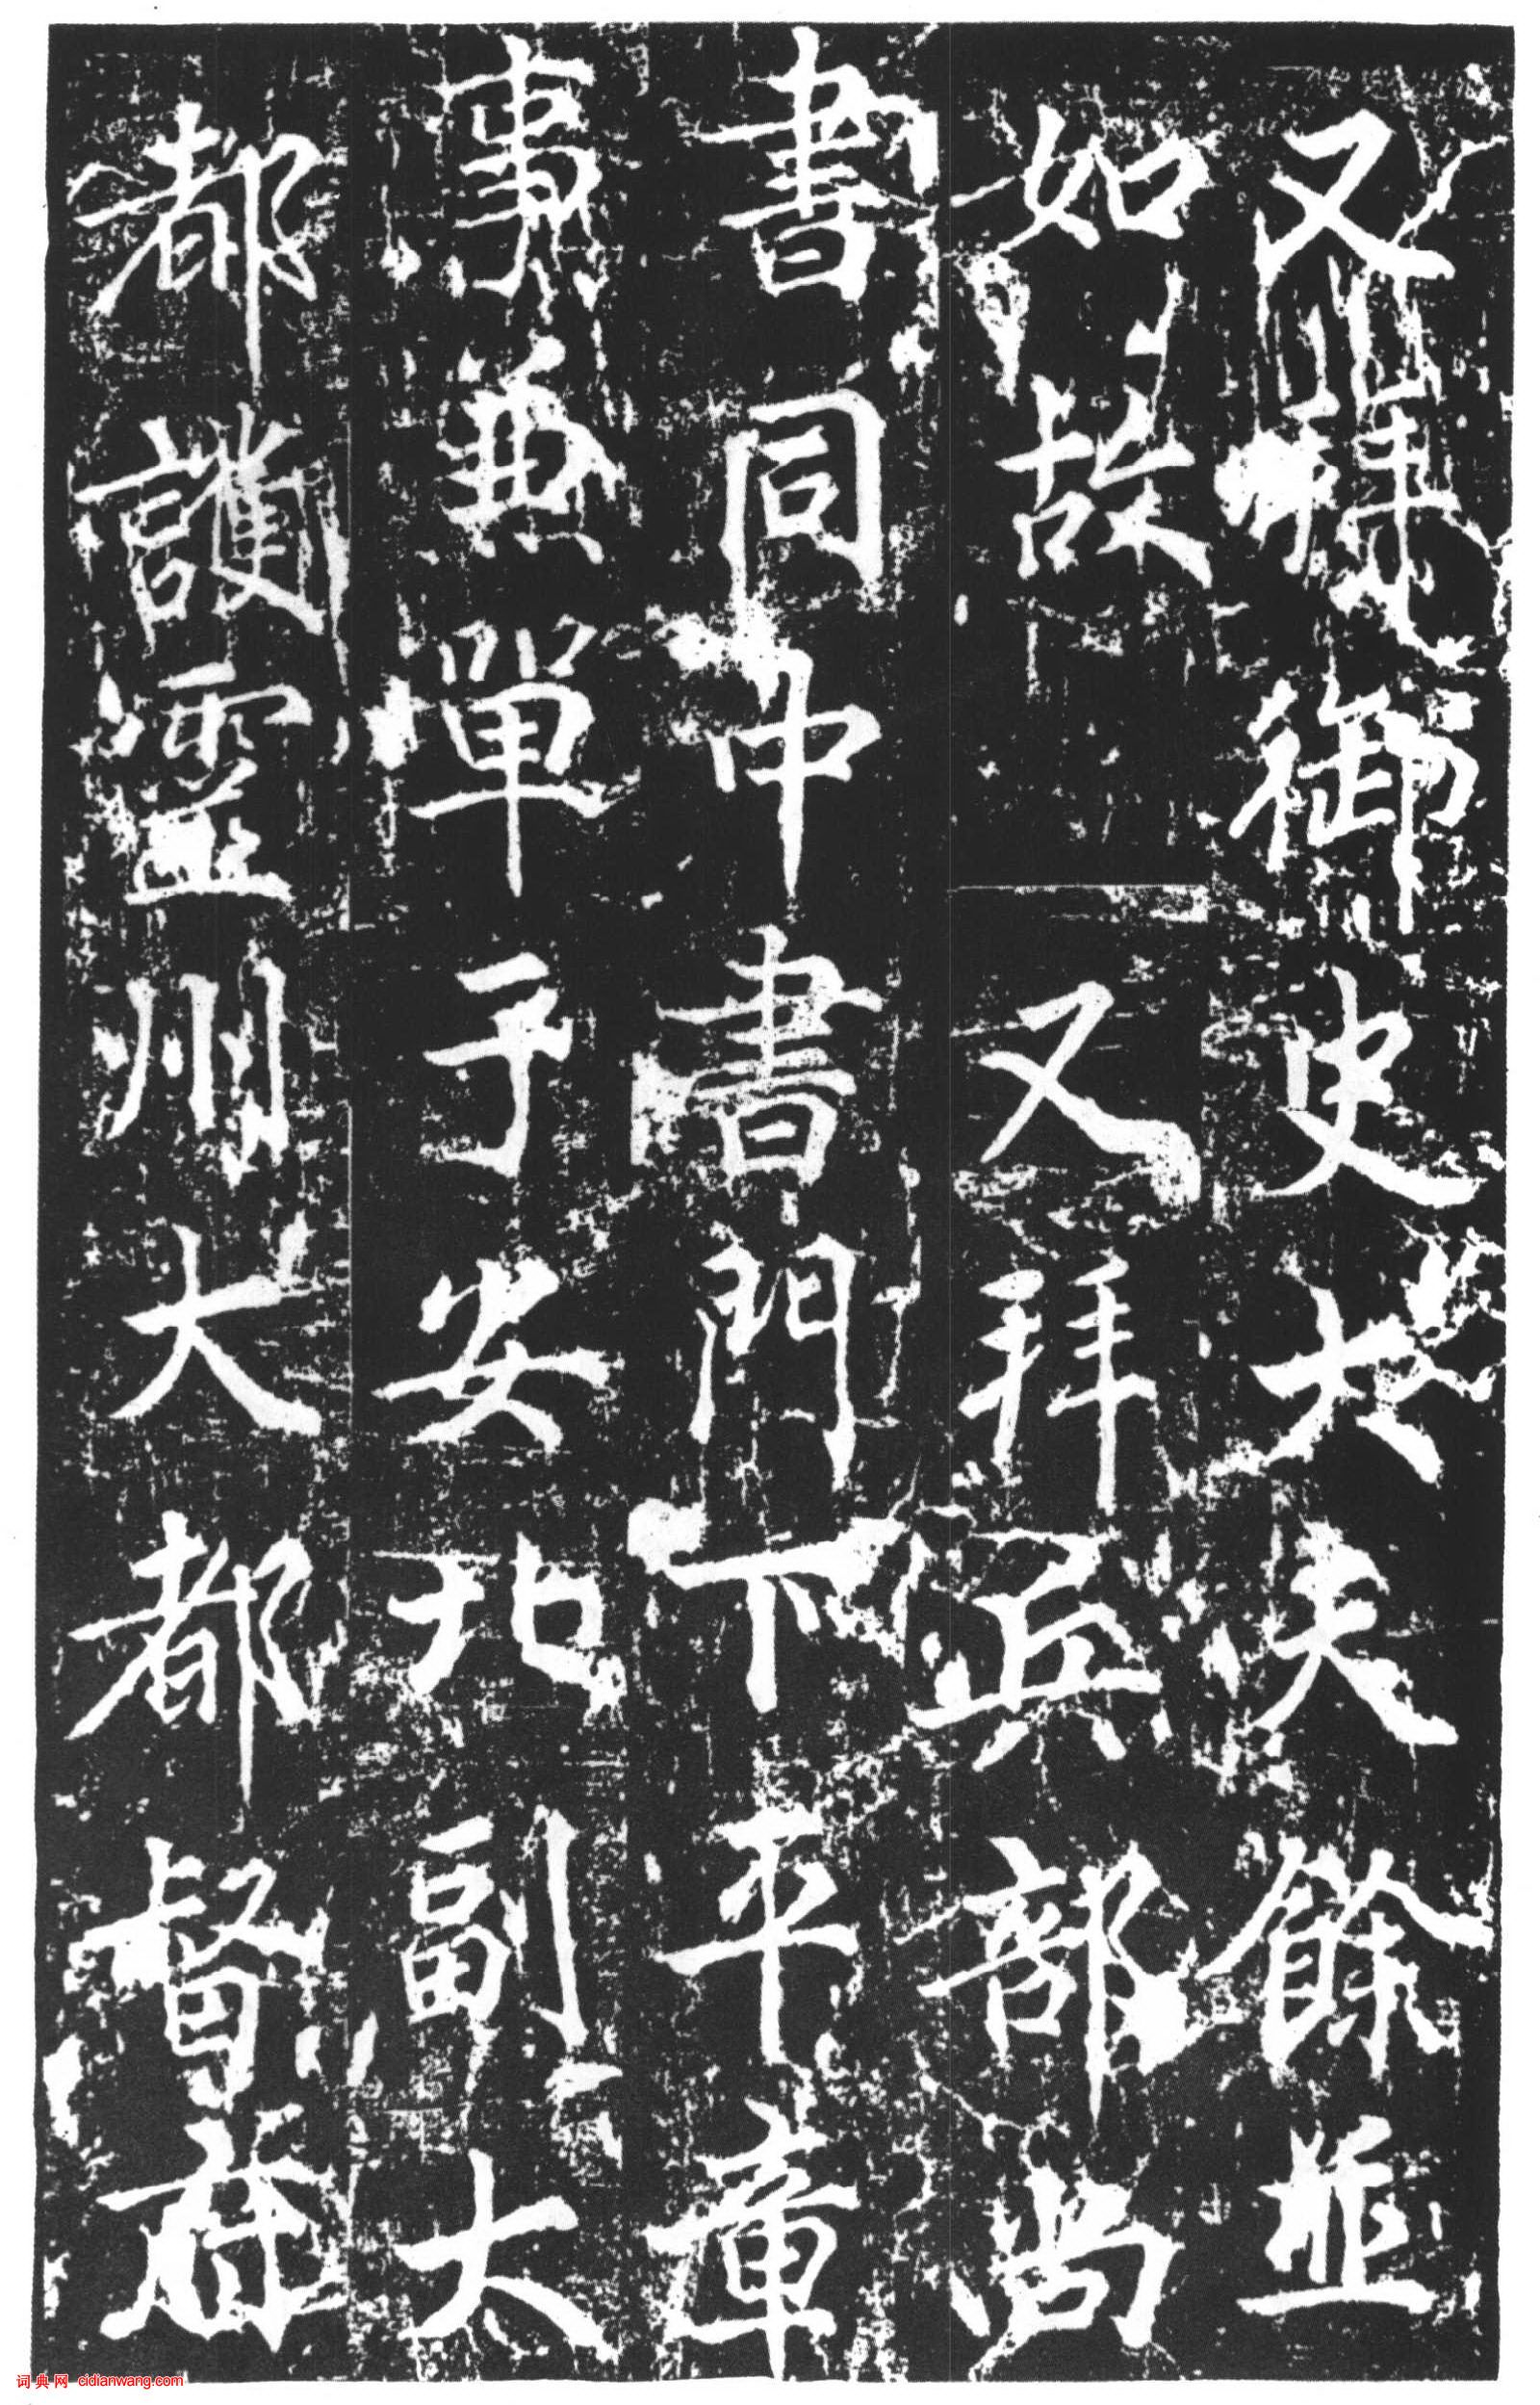 又拜御史大夫餘並
如故 又拜兵部尚
書同中書門下平章
事兼單于安北副大
都護靈州大都督府
词典网 cidianwang.com